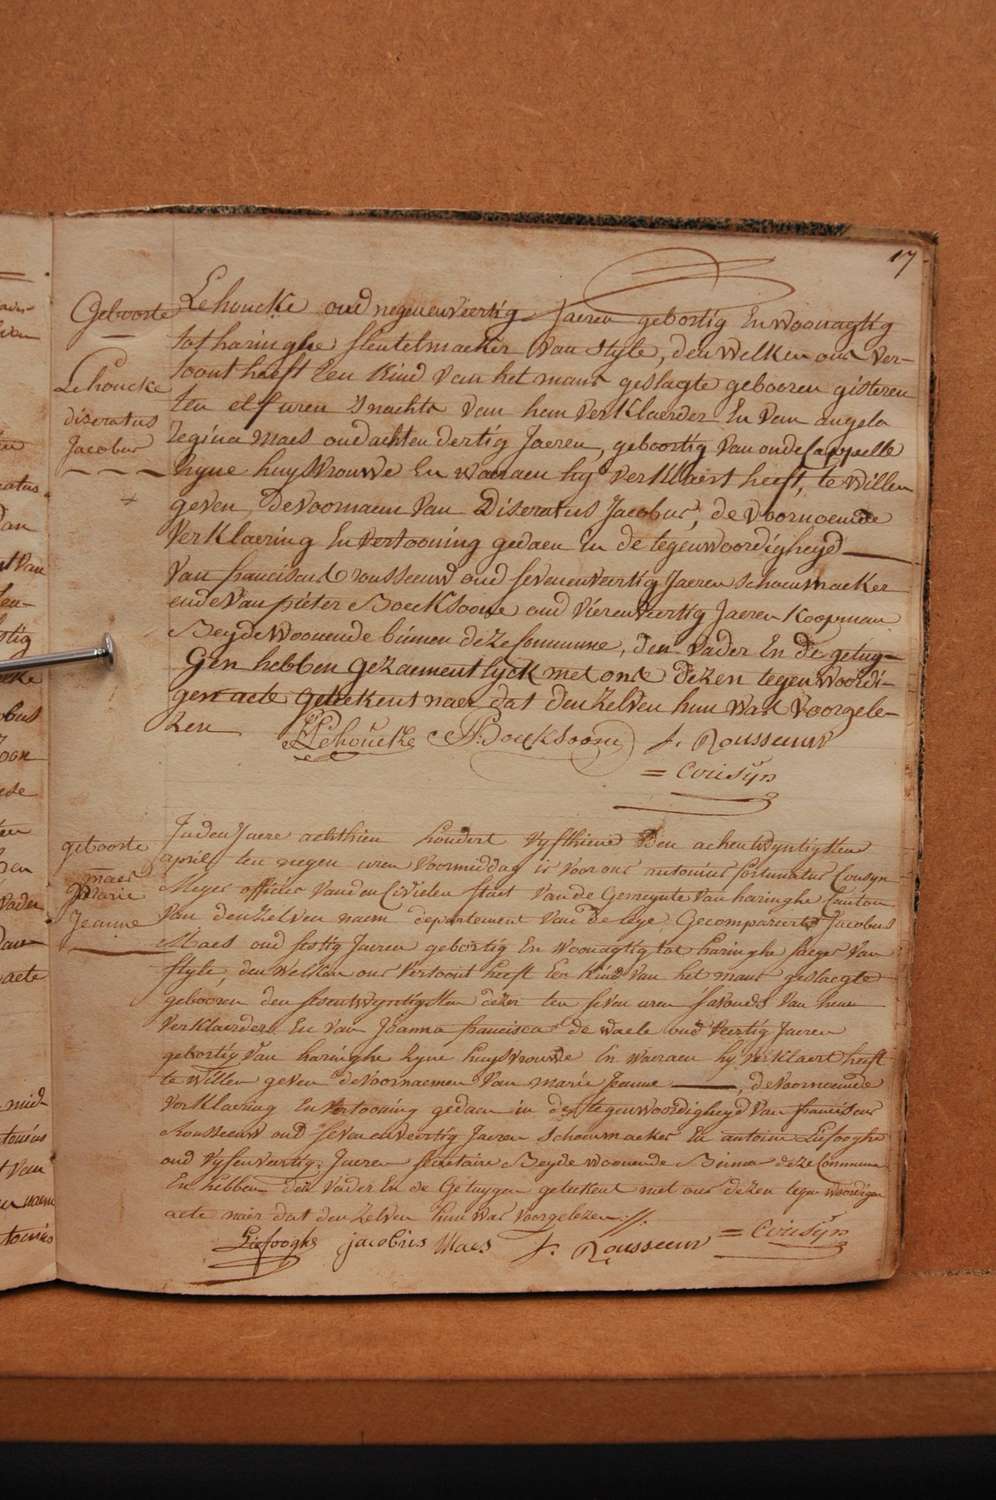 17
Geboorte
Lehoucke
diseratus
Jacobus
Lehoucke oud negenenveertig Jaeren gebortig En woonagtig
tot haringhe sleutelmaeker van style, den welken ons ver-
toont heeft Een Kind van het mans geslagte gebooren gisteren
ten elf uren s'nachts van hem verKlaerder En van angela
regina maes oud achtendertig Jaeren, geboortig van oudeCappelle
Zyne huysvrouwe En waeraen hy verKlaert heeft, te willen
geven De voornaem van Diseratus Jacobus, de voornoemde
verKlaering En vertooning gedaen in de tegenwoordigheyd
van franciscus rousseeuw oud sevenenveertig Jaeren schoenmaeker
ende van pieter BoecKsoone oud vierenveertig Jaeren Koopman
Beyde woonende binnen deze Commune, den vader En de getuy-
gen hebben gezaementlyck met ons dezen tegenwoordi-
gen acte geteekent naer dat den zelven hun was voorgele-
zen
Lehoucke P. Boecksoone f. Rousseeuw
= Cousÿn
geboorte
maes
Marie
Jeanne
In den Jaere achthien hondert vyfthiene Den achentwyntigsten
april, ten negen uren voormiddag is voor ons antonius fortunatus Cousyn
Meyer officier van den Civielen staet van de Gemeynte van haringhe Canton
van den zelven naem departement van De leye, Gecompareert Jacobus
Maes oud sestig Jaeren gebortig En woonagtig tot haringhe saeger van
style, den welken ons vertoont heeft Een Kind van het mans geslaegte
gebooren den sesentwyntigsten dezer ten seven uren s'avonds van hem
verKlaerder En van Joanna francisca de waele oud veertig Jaeren
gebortig van haringhe Zyne huysvrouwe En waeraen hy verKlaert heeft
te willen geven de voornaemen van marie Jeanne de voornoemde
verKlaering En vertooning gedaen in de tegenwoordigheyd van franciscus
Rousseeuw oud sevenenveertig Jaeren schoenmaeker En antoine Liefooghe
oud vyfenveertig Jaeren secretaire Beyde woonende Binnen deze Commune
En hebben den vader En de Getuygen geteekent met ons dezen tegenwoordigen
acte naer dat den zelven hun was voorgelezen
Liefooghe jacobus Maes f. Rousseeuw = Cousÿn